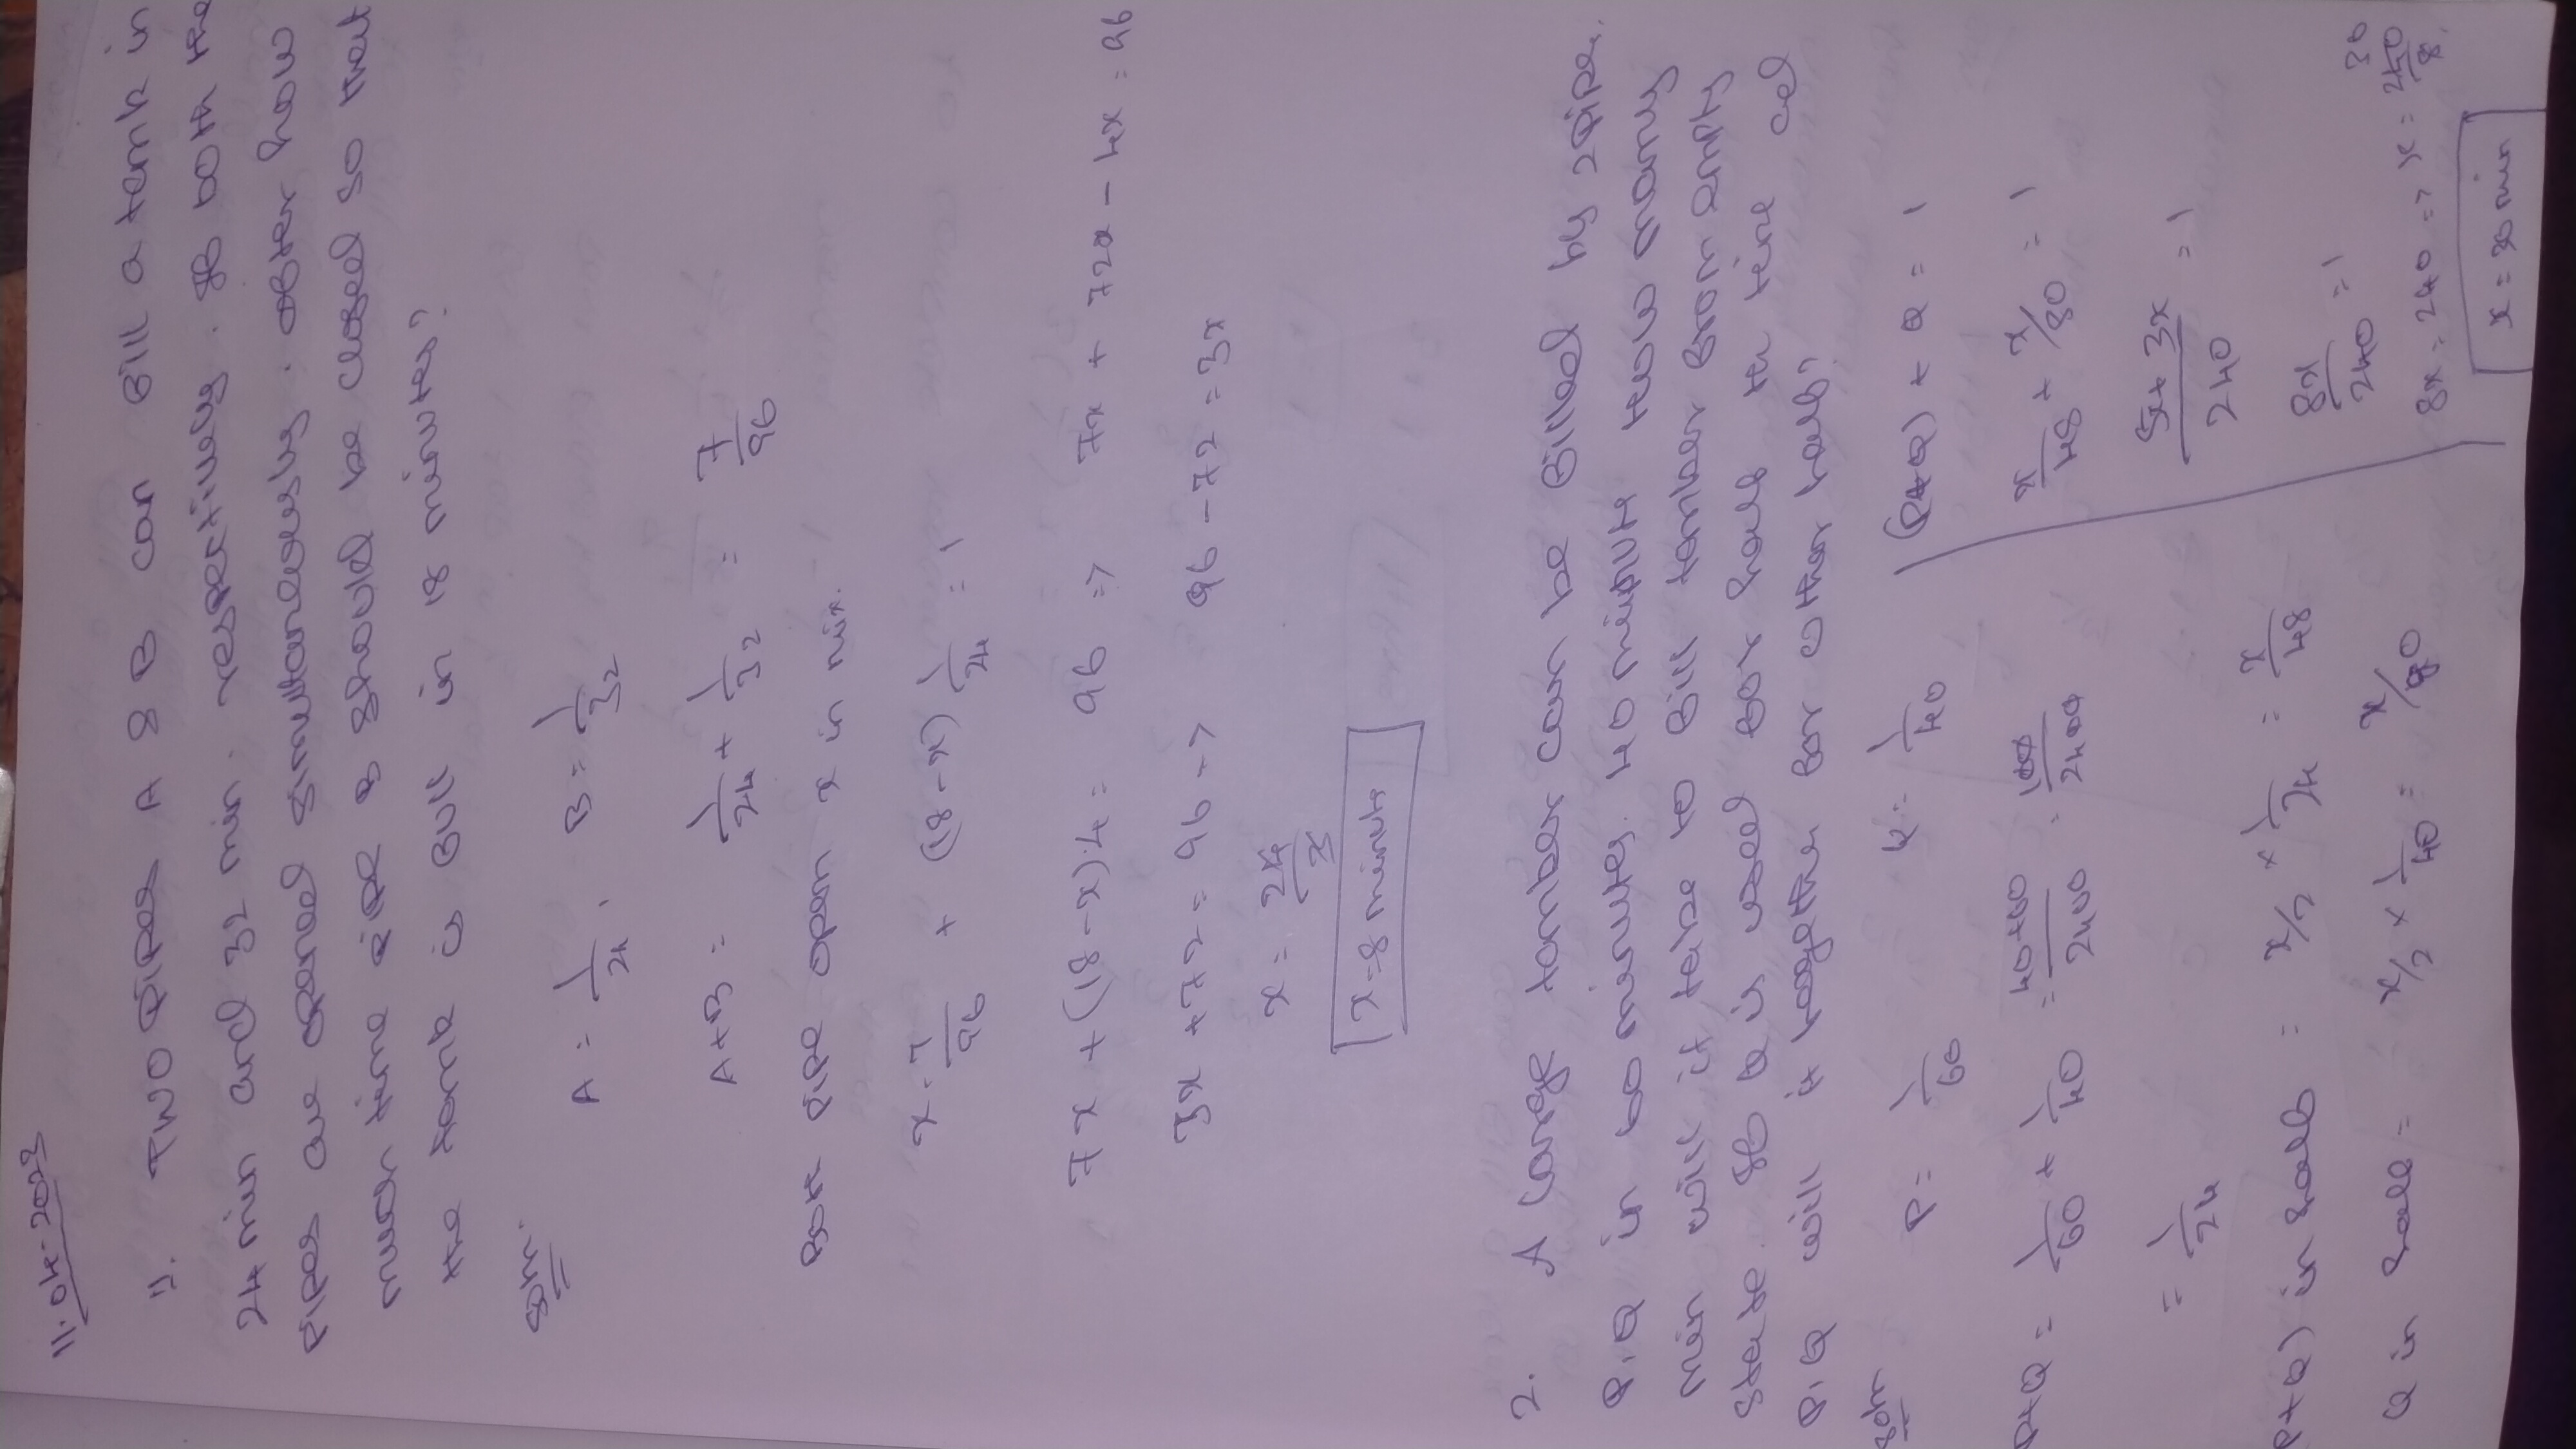 11.04-2023
1). Two pipes A & B can fill a tank in
24 min and 32 min. respectively. If both the
pipes are opened simultaneously. after how
much time pipe B should be closed so that
the tank is full in 18 minutes?
Soln.
A = 1/24, B = 1/32
A+B = 1/24 + 1/32 = 7/96
Both pipe open x in
x. 7/96 + (18-x) 1/24 = 1
7x + (18-x).4 = 96 => 7x + 72 - 4x = 96
3x + 72 = 96 => 96 - 72 = 3x
x = 24/3
x = 8 minute
2. A large tanker can be filled by 2 pipe.
P, Q in 60 minutes. 40 minute How many
min will it take to fill tanker from empty
state. If Q is used for half the time
P, Q will it together for other half?
Soln
P = 1/60 Q = 1/40
P+Q = 1/60 + 1/40 = 40+60/2400 = 100/2400
= 1/24
P+Q) in half = x/2 × 1/24 = x/48
Q in half = x/2 × 1/40 = x/80
(P+Q) + Q = 1
x/48 + x/80 = 1
5x+3x/240 = 1
8x/240 = 1
30
8x = 240 => x = 240/8
x = 30 min